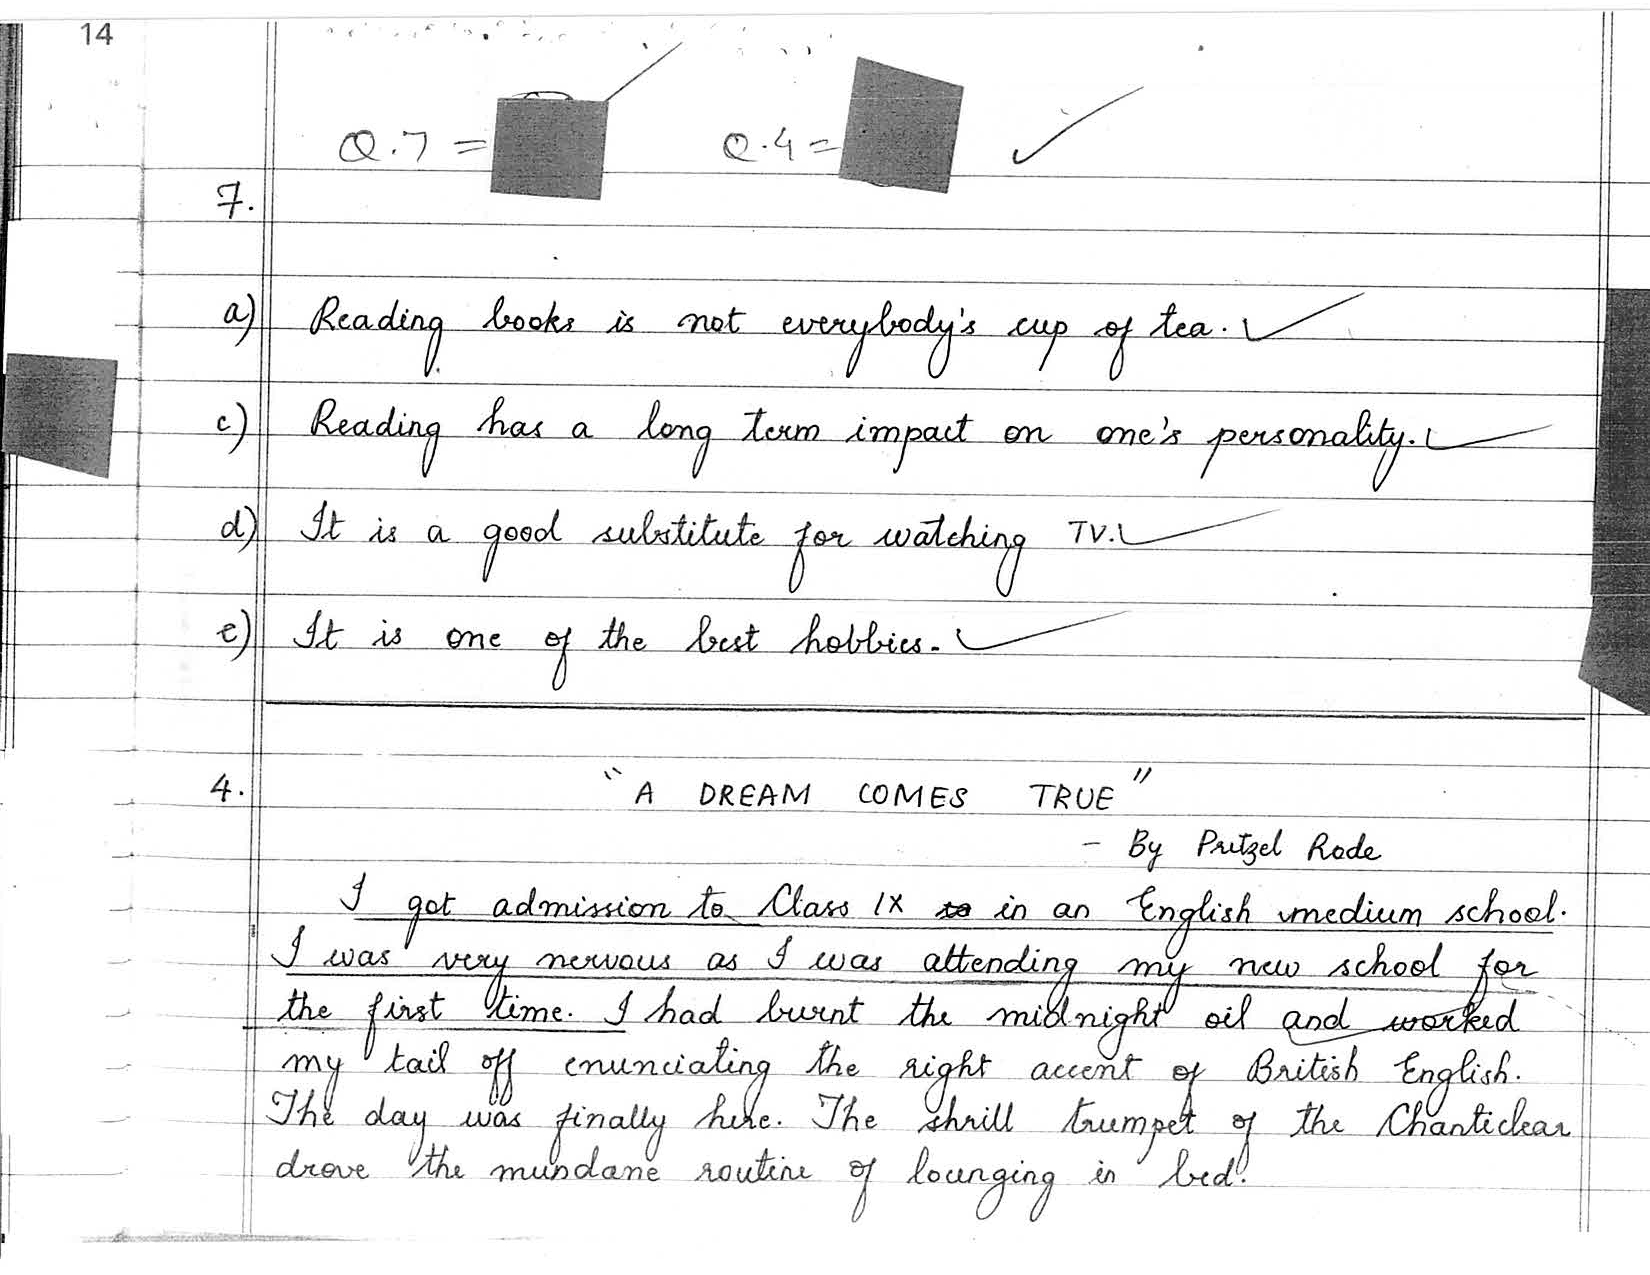 14
Q.7 =
Q.4 =
7.
a) Reading books is not everybody's cup of tea.
c) Reading has a long term impact on one's personality.
d) It is a good substitute for watching TV.
e) It is one of the best hobbies.
4. "A DREAM COMES TRUE"
- By Pritzel Rode
I got admission to Class IX to in an English medium school.
I was very nervous as I was attending my new school for
the first time. I had burnt the midnight oil and worked
my tail off enunciating the right accent of British English.
The day was finally here. The shrill trumpet of the Chanticlear
drove the mundane routine of lounging in bed.